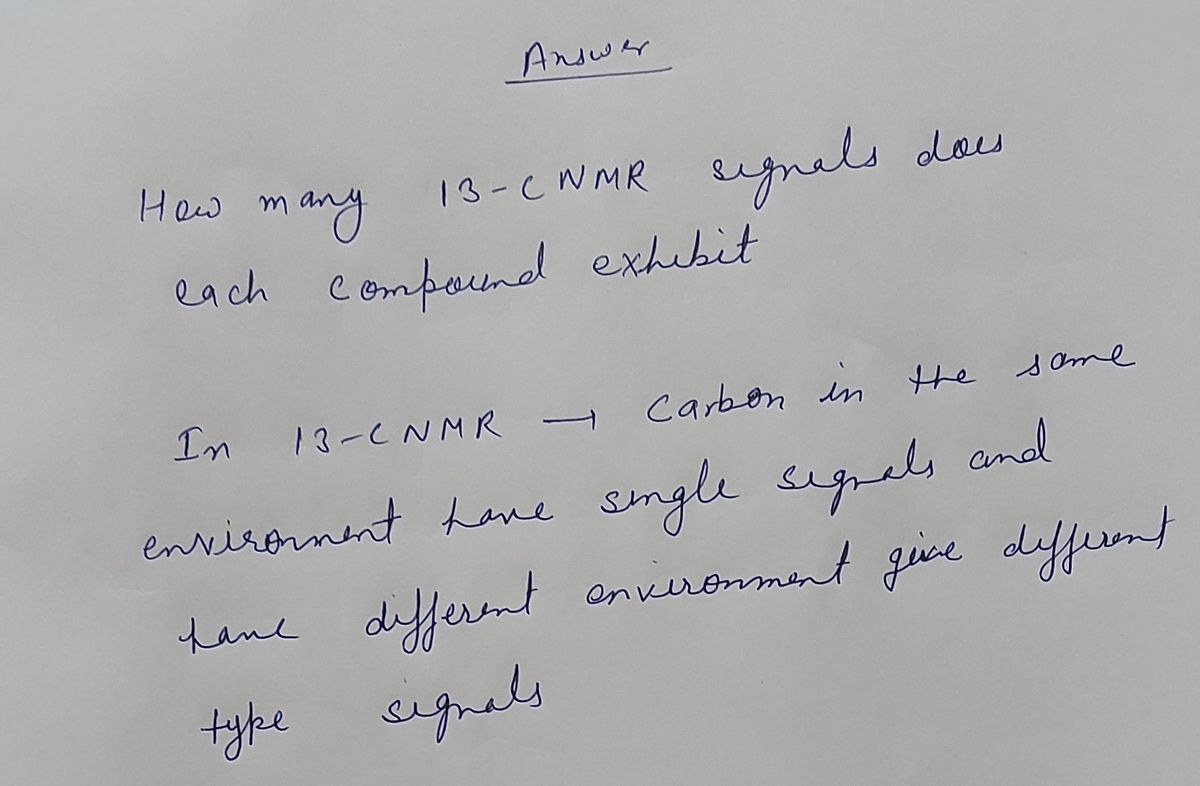 Answer
How many 13-C NMR signals does
each compound exhibit
In 13-C NMR → Carbon in the same
environment have single signals and
have different environment give different
type signals